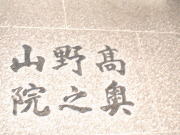 高野山
奥之院